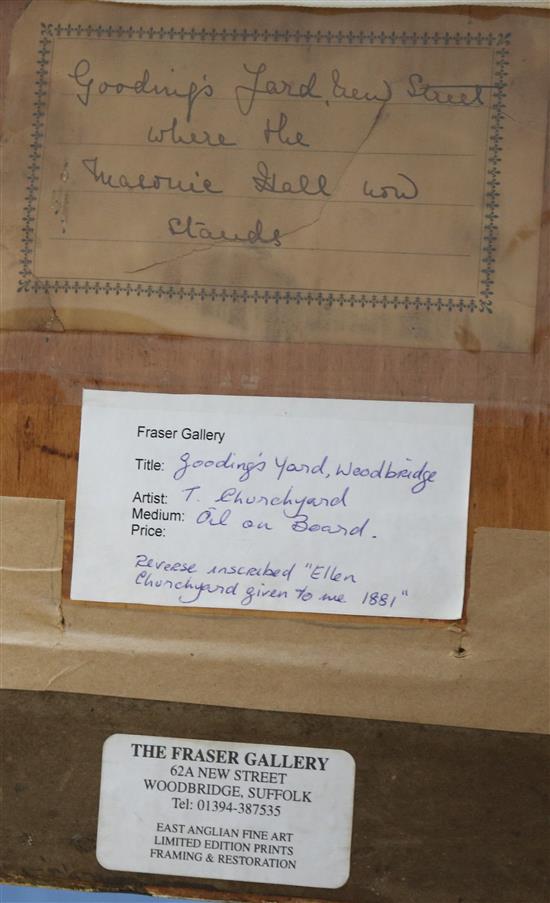 Gooding's Yard, New Street
where the
Masonic Hall now
stands
Fraser Gallery
Title: Gooding's Yard, Woodbridge
Artist: T. Churchyard
Medium: Oil on Board.
Price:
Reverse inscribed "Ellen
Churchyard given to me 1881"
THE FRASER GALLERY
62A NEW STREET
WOODBRIDGE, SUFFOLK
Tel: 01394-387535
EAST ANGLIAN FINE ART
LIMITED EDITION PRINTS
FRAMING & RESTORATION